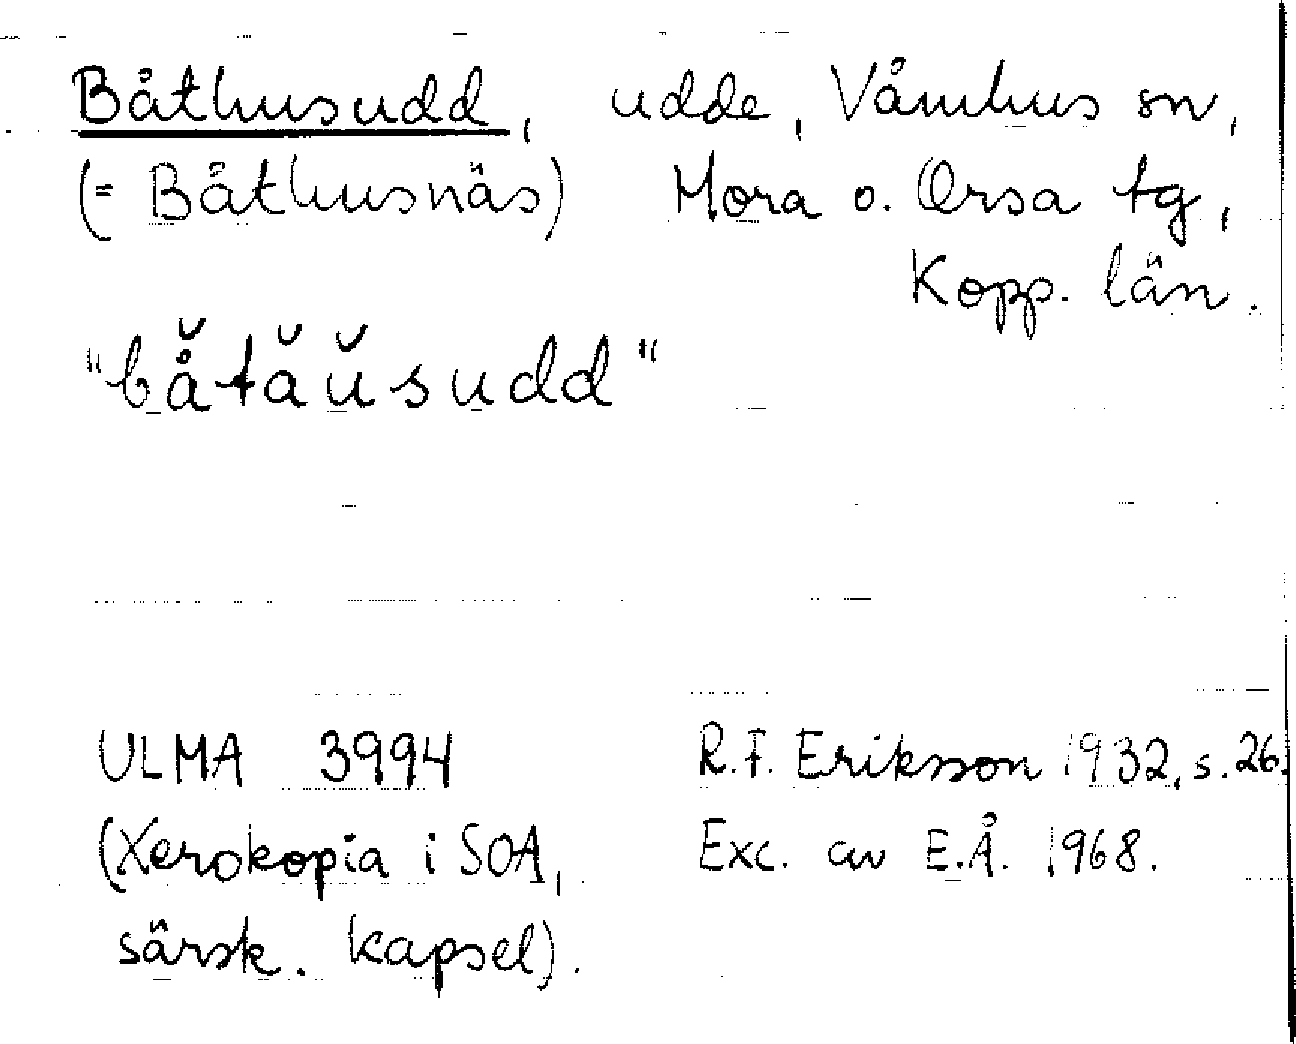 Båthusudd, udde, Våmhus sn,
(= Båthusnäs) Mora o. Orsa tg,
Kopp. län.
"bå̆tăŭsudd"
ULMA 3994 R.F. Eriksson 1932, s. 26.
(Xerokopia i SOA, Exc. av E.Å. 1968.
särsk. kapsel).